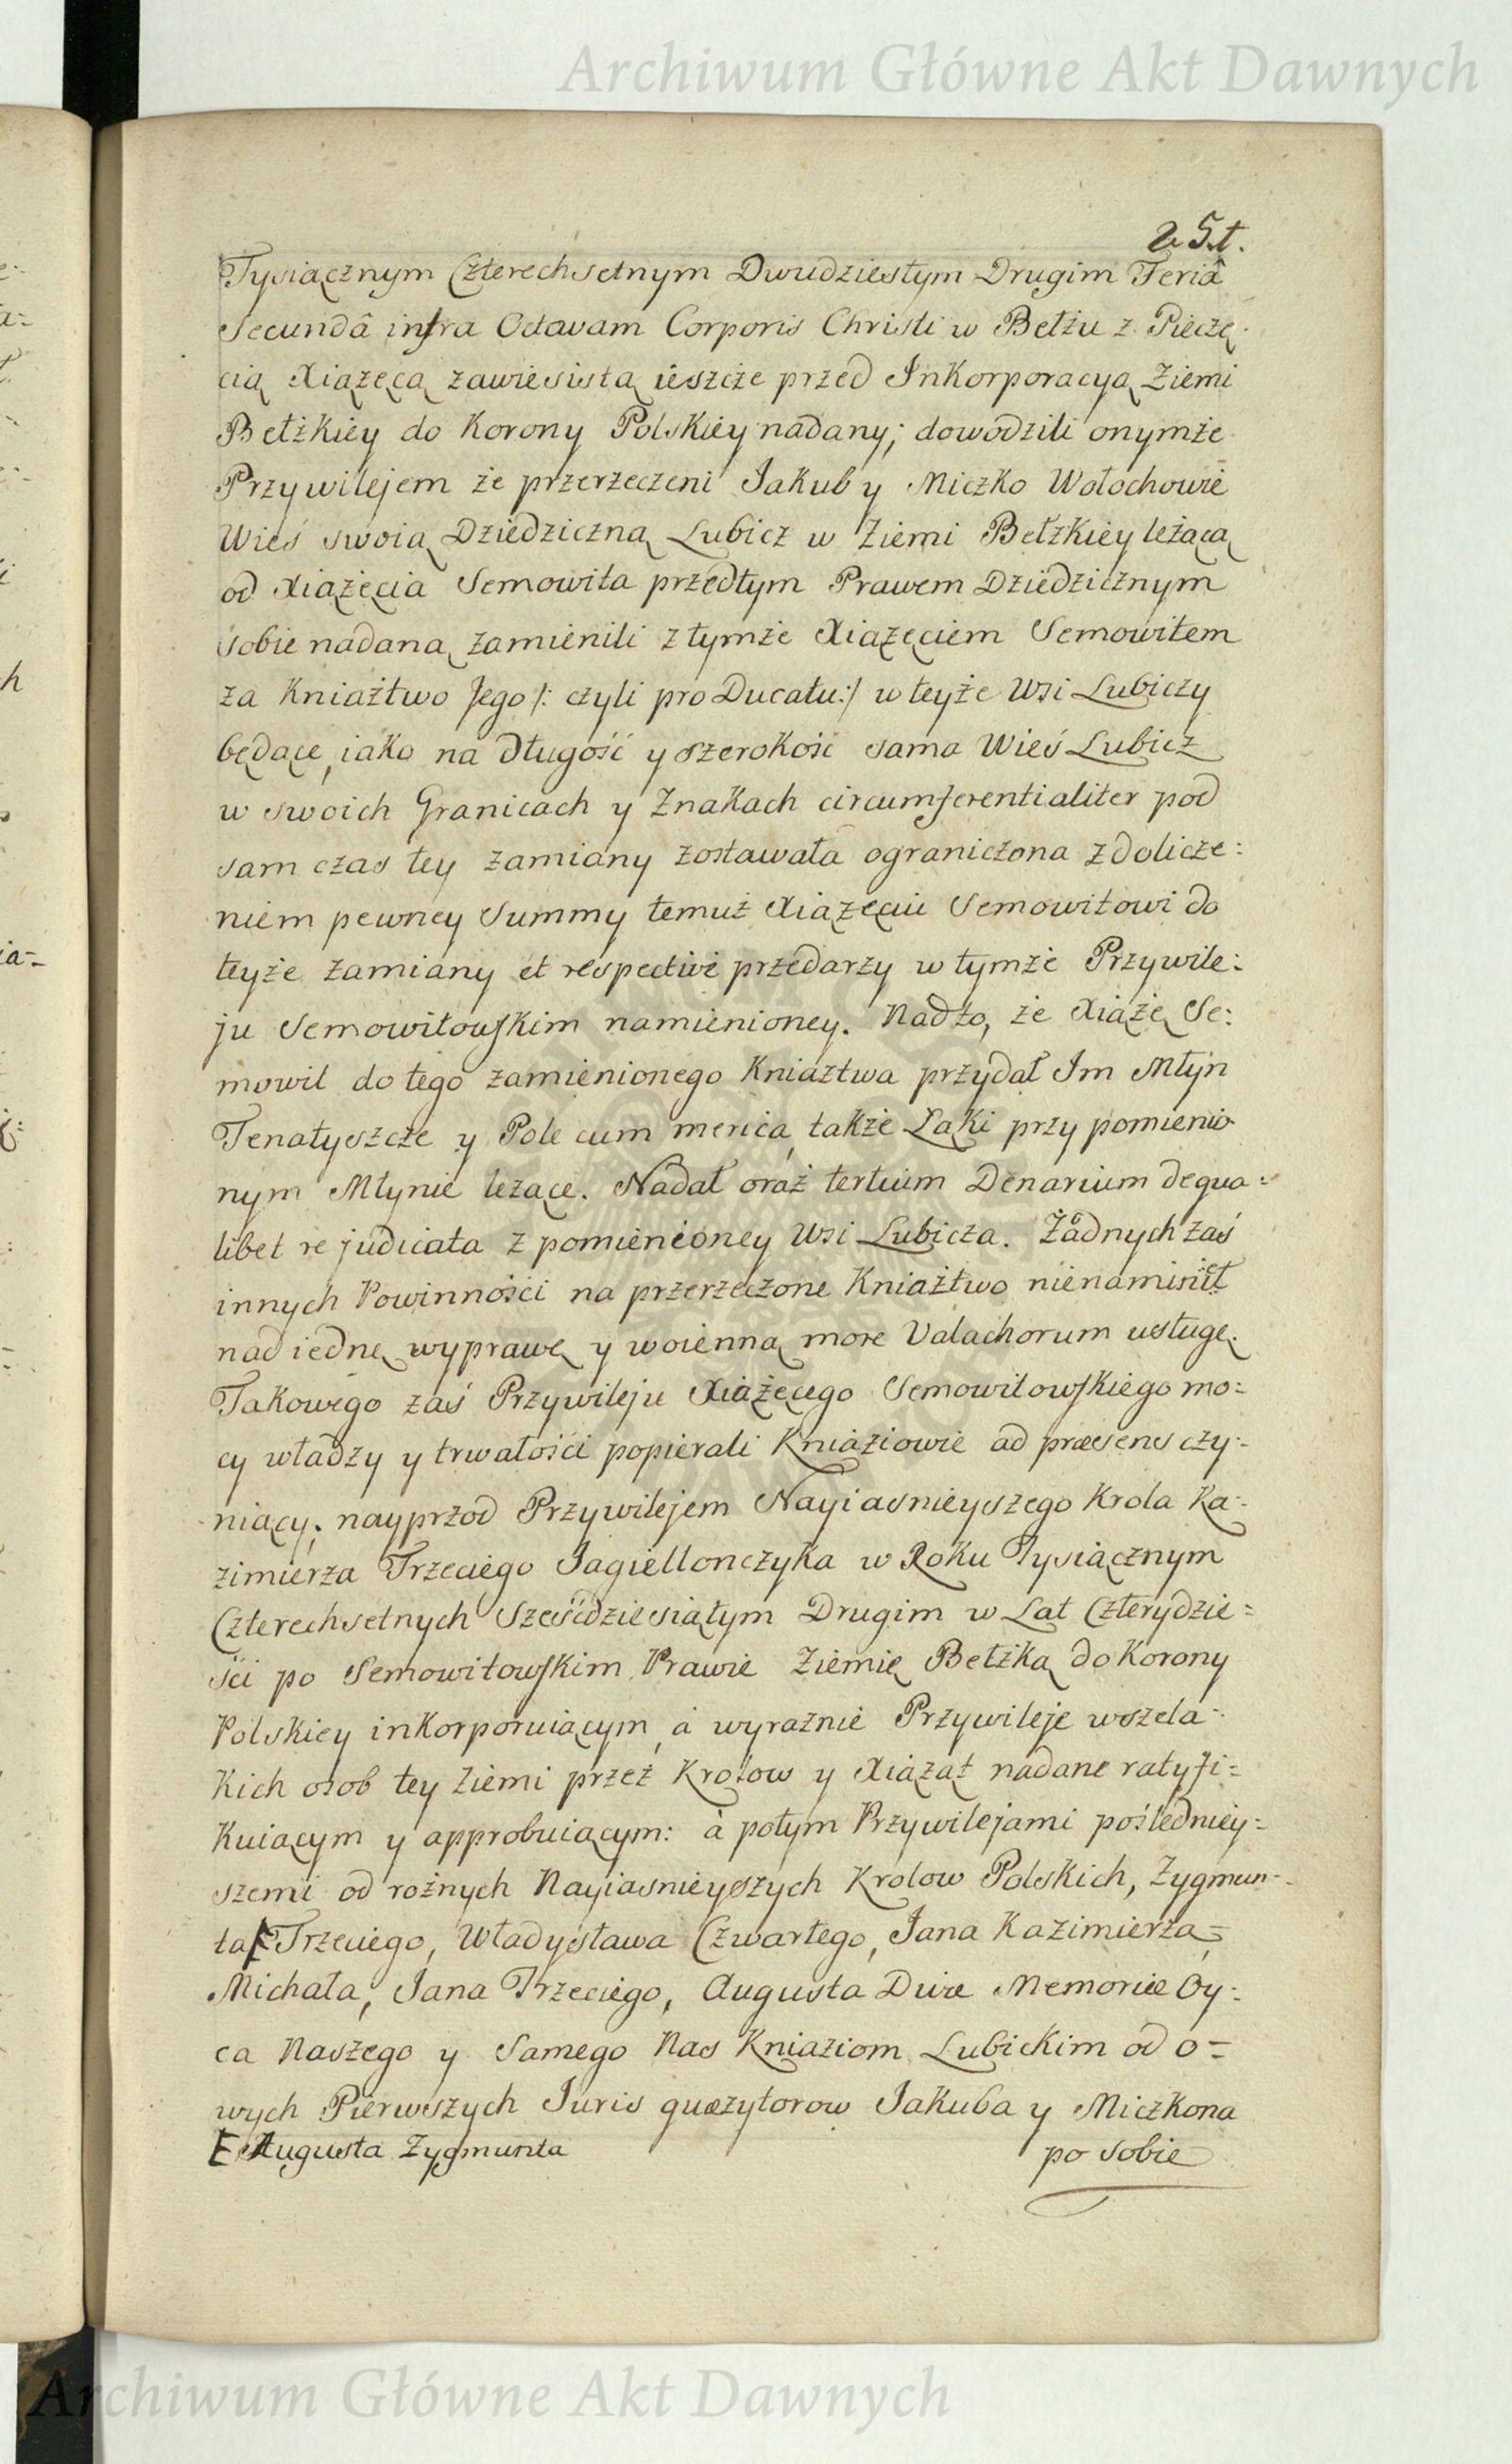 Archiwum Główne Akt Dawnych
Tysiącznym Czterechsetnym Dwudziestym Drugim Feriâ
Secundâ infra Octavam Corporis Christi w Bełzu z Pieczę-
cią Xiążęcą zawiesistą ieszcze przed Inkorporacyą Ziemi
Bełzkiey do Korony Polskiey nadany; dowodzili onymże
Przywilejem że przerzeczeni Jakub y Miczko Wołochowie
Wieś swoią Dziedziczną Lubicz w Ziemi Bełzkiey leżącą
od Xiążęcia Semowita przedtym Prawem Dziedzicznym
sobie nadaną zamienili z tymże Xiążęciem Semowitem
za Kniaztwo Jego /: czyli pro Ducatu :/ w teyże Wsi Lubiczy
będące, iako na długość y szerokość sama Wieś Lubicz
w swoich Granicach y Znakach circumferentialiter pod
sam czas tey zamiany zostawała ograniczona z dolicze:
niem pewney Summy temuż Xiążęciu Semowitowi do
teyże zamiany et respective przedarzy w tymże Przywile:
ju Semowitowskim namienioney. Nadto, że Xiążę Se:
mowit do tego zamienionego Kniaztwa przydał Im Młyn
Tenatyszcze y Pole cum merica, także Łąki przy pomienio
nym Młynie leżące. Nadał oraz tertium Denarium de qua=
libet re judicata z pomienioney Wsi Lubicza. Żadnych zaś
innych Powinności na przerzeczone Kniaztwo nienamienił
nad iednę wyprawę y woienną more Valachorum usługę.
Takowego zaś Przywileju Xiążęcego Semowitowskiego mo=
cy władzy y trwałości popierali Kniaziowie ad præsens czy-
niący; nayprzod Przywilejem Nayiasnieyszego Krola Ka-
zimierza Trzeciego Jagiellonczyka w Roku Tysiącznym
Czterechsetnych Sześćdziesiątym Drugim w Lat Czterydzie=
ści po Semowitowskim Prawie Ziemię Bełzką do Korony
Polskiey inkorporuiącym, à wyraznie Przywileje wszela-
kich osob tey Ziemi przez Krolow y Xiążąt nadane ratyfi=
kuiącym y approbuiącym: à potym Przywilejami pośledniey=
szemi od rożnych Nayiasnieyszych Krolow Polskich, Zygmun-
ta Trzeciego, Władysława Czwartego, Jana Kazimierza,
Michała, Jana Trzeciego, Augusta Divæ Memoriæ Oy-
ca Naszego y Samego Nas Kniaziom Lubickim od o=
wych Pierwszych Juris quæzytorow Jakuba y Miczkona
Augusta Zygmunta
po sobie
Archiwum Główne Akt Dawnych